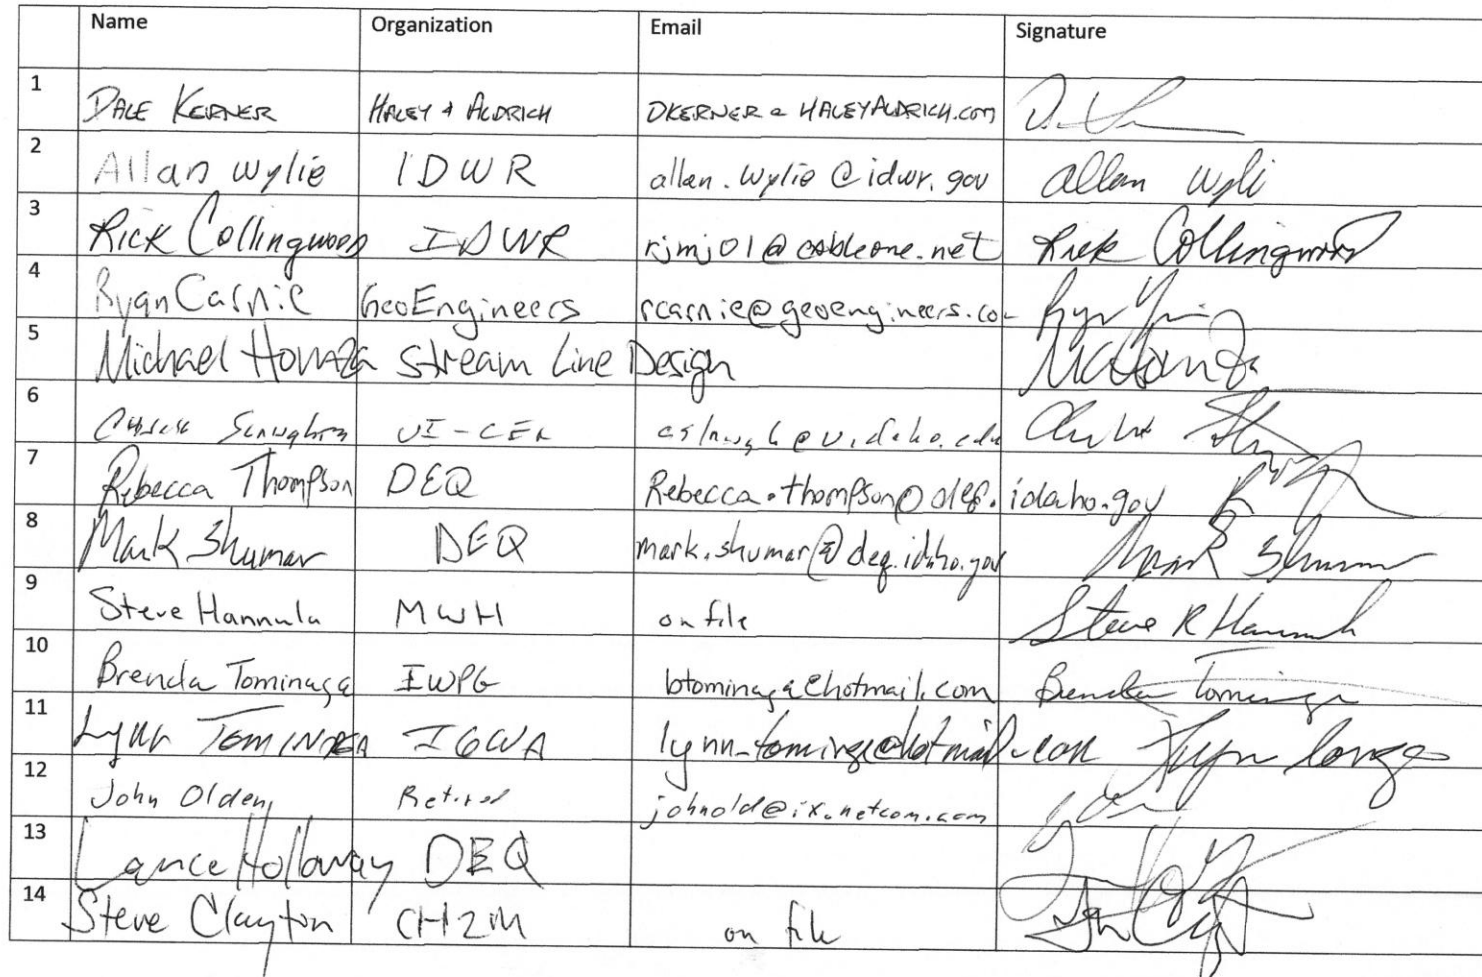 Name Organization Email Signature
1 DALE KERNER HALEY & ALDRICH DKERNER@HALEYALDRICH.COM
2 Allan Wylie IDWR allan.wylie@idwr.gov allan wyli
3 Rick Collingwood IDWR rjmj01@cableone.net Rick Collingwood
4 Ryan Carnie GeoEngineers rcarnie@geoengineers.co
5 Michael Homza Stream Line Design
6 UI-CER
7 Rebecca Thompson DEQ Rebecca.thompson@deq.idaho.gov
8 Mark Shumar DEQ mark.shumar@deq.idaho.gov Mark Shumar
9 Steve Hannula MWH on file Steve R Hannula
10 Brenda Tominaga IWPG btominaga@hotmail.com Brenda Tominaga
11 Lynn TOMINAGA IGWA
12 John Olden Retired johnold@ix.netcom.com
13 Lance Holloway DEQ
14 Steve Clayton CH2M on file